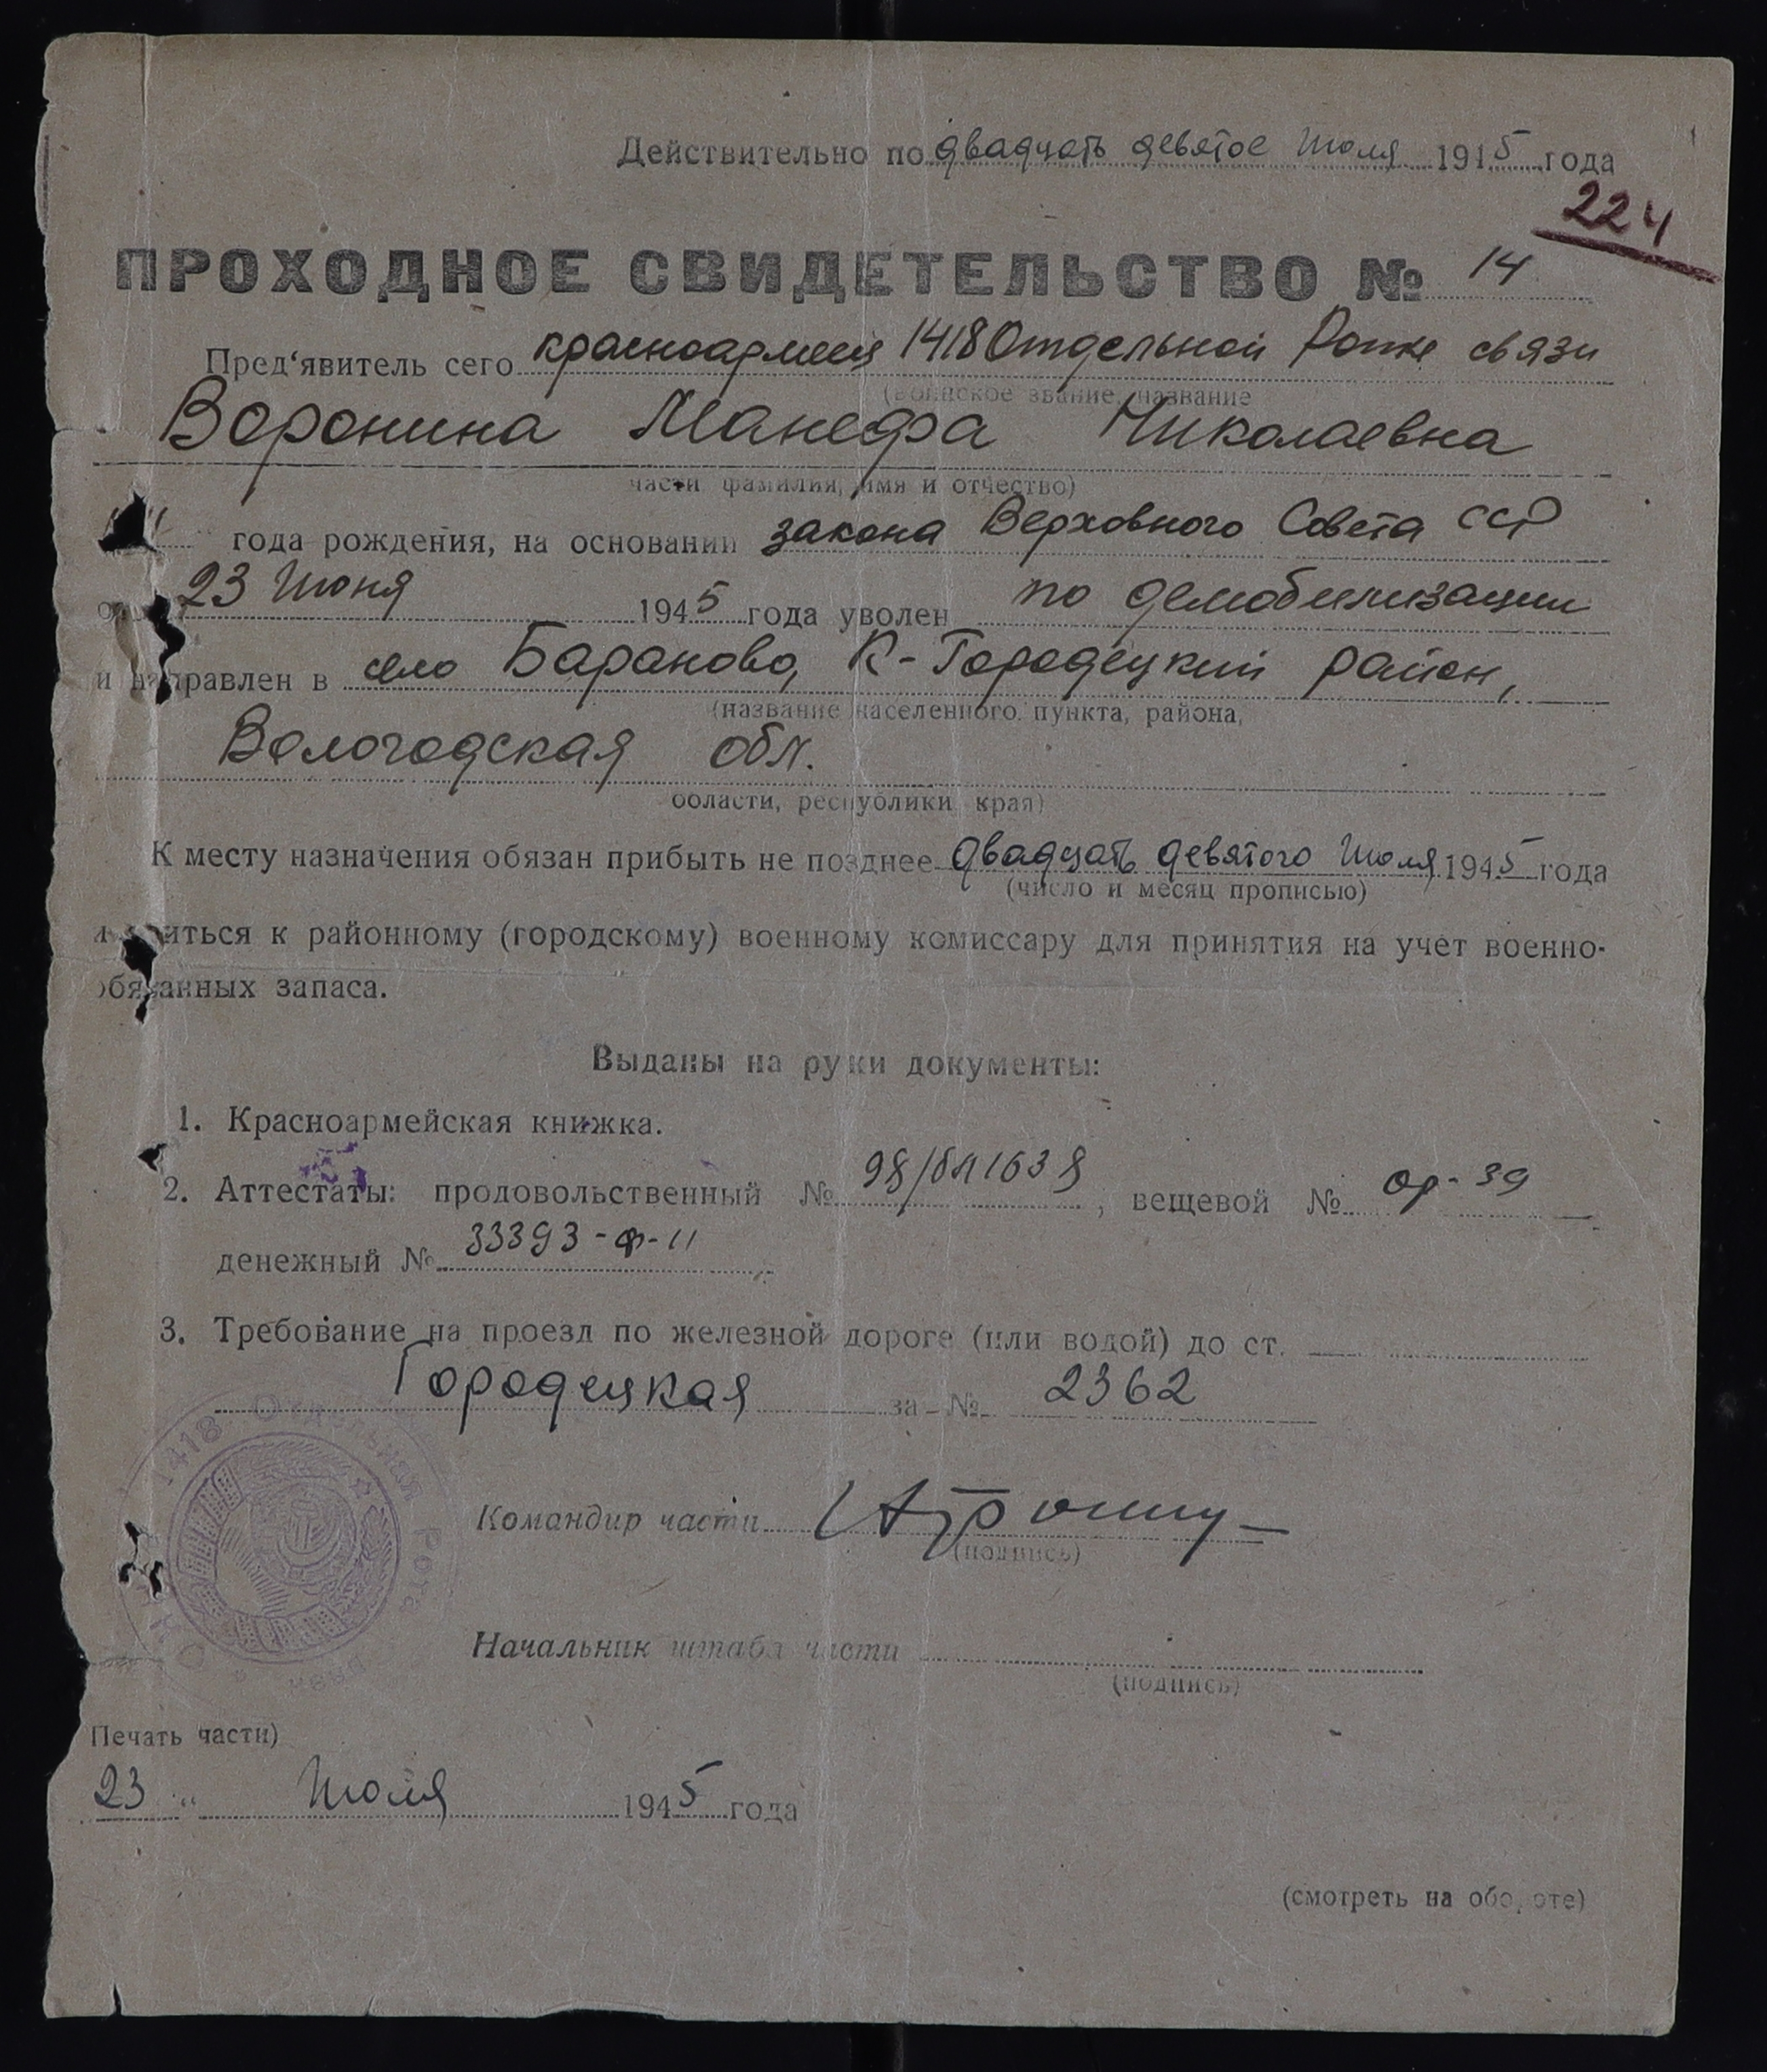 Действительно по двадцать девятое Июля 1945 года
224
ПРОХОДНОЕ СВИДЕТЕЛЬСТВО № 14
Пред'явитель сего красноармеец 1418 Отдельной Роты связи
(воинское звание, название
Воронина Манефа Николаевна
части фамилия, имя и отчество)
года рождения, на основании закона Верховного Совета ССР
от 23 Июня 1945 года уволен по демобилизации
и направлен в село Бараново, К-Городецкий район,
(название населенного пункта, района,
Вологодская обл.
области, республики края)
К месту назначения обязан прибыть не позднее двадцать девятого Июля 1945 года
(число и месяц прописью)
и явиться к районному (городскому) военному комиссару для принятия на учет военно-
обязанных запаса.
Выданы на руки документы:
1. Красноармейская книжка.
2. Аттестаты: продовольственный № , вещевой № ор-39
денежный № 33393-ф-11
3. Требование на проезд по железной дороге (или водой) до ст.
Городецкая за № 2362
1418 Отдельная Рота связи
Командир части
(подпись)
Начальник штаба части
(подпись)
Печать части)
23 " Июля 1945 года
(смотреть на обороте)